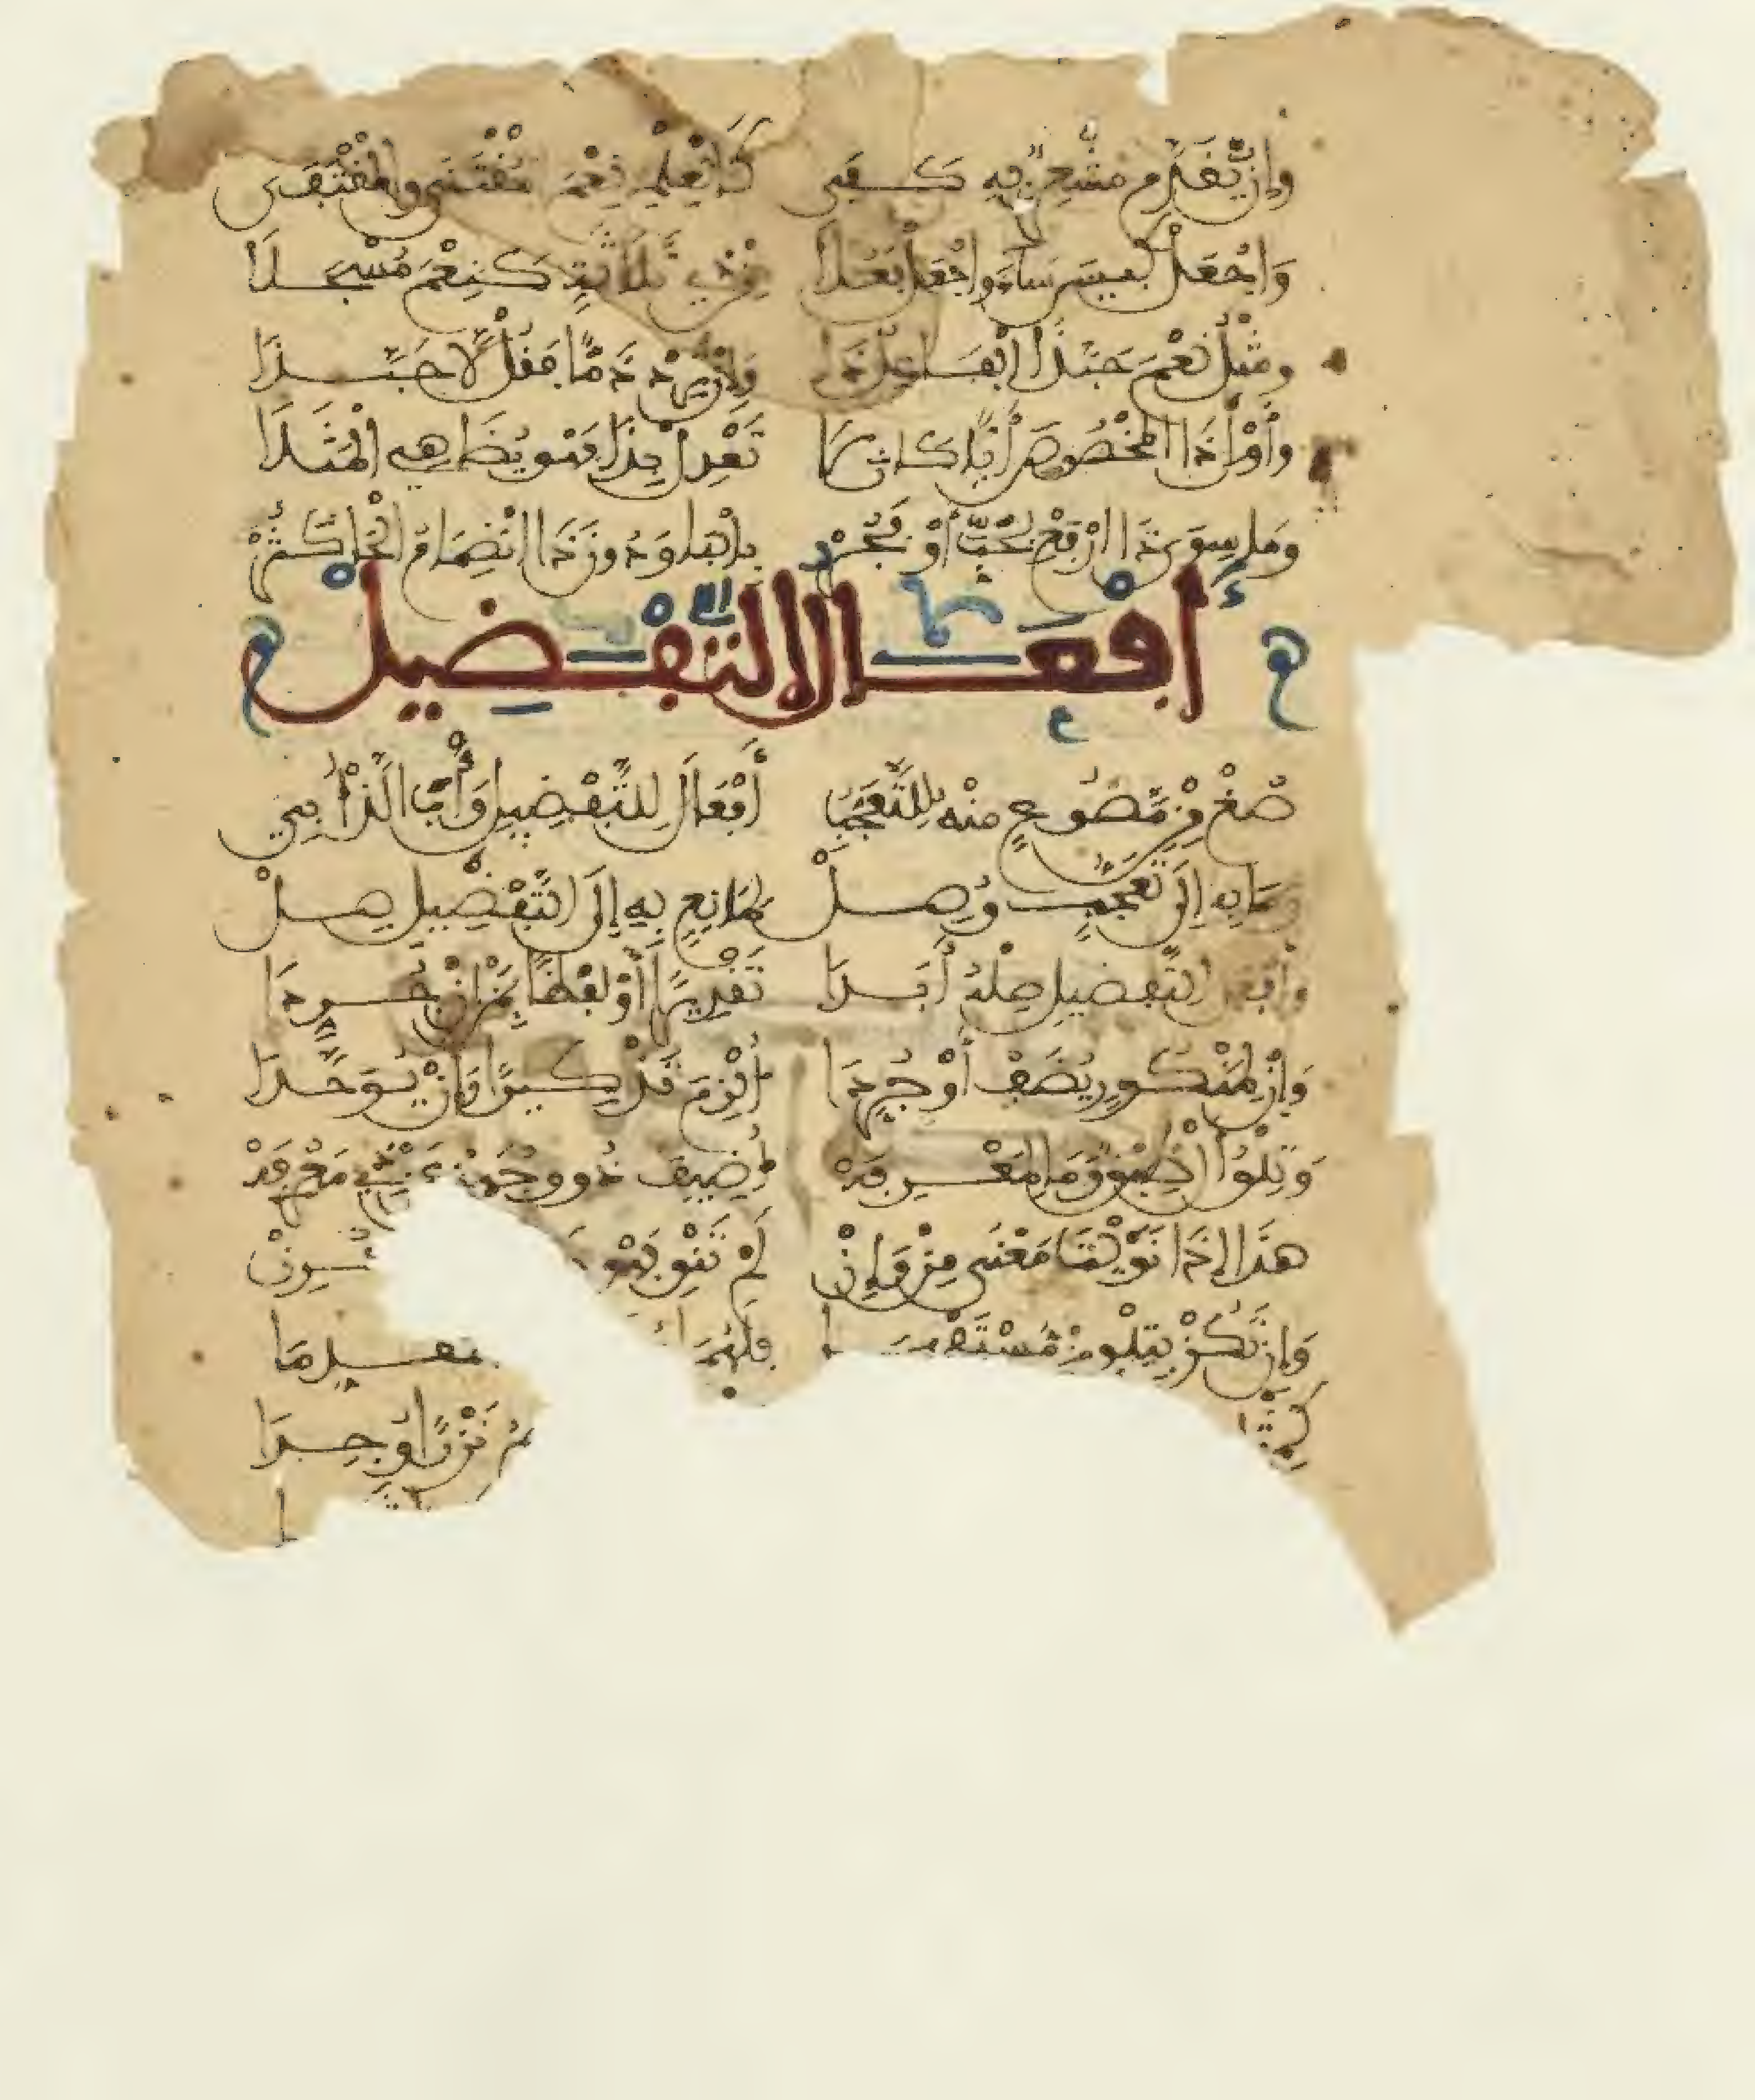 وَإِن يُّقَدَّم مُّشْعِرٌ بِهِ كَفَى كَالْعِلْمُ نِعْمَ الْمُقْتَنَى وَالْمُقْتَفَى
وَاجْعَلْ كَبِيسَ سَاءَ وَاجْعَلْ فَعُلَا مِن ذِي ثَلَاثَةٍ كَنِعْمَ مُسْجَلَا
وَمِثْلُ نِعْمَ حَبَّذَا الْفَاعِلُ ذَا وَإِن تُرِدْ ذَمًّا فَقُلْ لَا حَبَّذَا
وَأَوْلِ ذَا الْمَخْصُوصَ أَيًّا كَانَ لَا تَعْدِلْ بِذَا فَهُوَ يُضَاهِي الْمَثَلَا
وَمَا سِوَى ذَا ارْفَعْ بِحَبَّ أَوْ فَجُرْ بِالْبَا وَدُونَ ذَا انْضِمَامُ الْحَا كَثُرْ
أَفْعَالُ التَّفْضِيلْ
صُغْ مِن مَّصُوغٍ مِنْهُ لِلتَّعَجُّبِ أَفْعَالَ لِلتَّفْضِيلِ وَأْبَ اللَّذْ أُبِي
وَمَا بِهِ إِلَى تَعَجُّبٍ وُصِلْ لِمَانِعٍ بِهِ إِلَى التَّفْضِيلِ صِلْ
وَأَفْعَلَ التَّفْضِيلِ صِلْهُ أَبَدَا تَقْدِيرًا أَوْ لَفْظًا بِمِنْ إِنْ جُرِّدَا
وَإِن لِمَنْكُورٍ يُضَفْ أَوْ جُرِّدَا أُلْزِمَ تَذْكِيرًا وَأَنْ يُوَحَّدَا
وَتِلْوُ الْ طِبْقٌ وَمَا لِمَعْرِفَهْ أُضِيفَ ذُو وَجْهَيْنِ عَنْ ذِي مَعْرِفَهْ
هَذَا إِذَا نَوَيْتَ مَعْنَى مِنْ وَإِنْ لَمْ تَنْوِ فَهْوَ قُرِنْ
وَإِن تَكُنْ بِتِلْوِ مِنْ مُسْتَفْهِمَا فَلَهُمَا مُقَدِّمَا
كَمِثْلِ نَزْرًا وُجِدَا